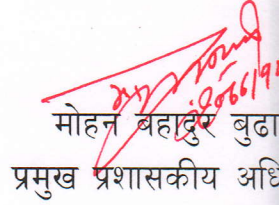 मोहन बहादुर बुढा
प्रमुख प्रशासकीय अधि